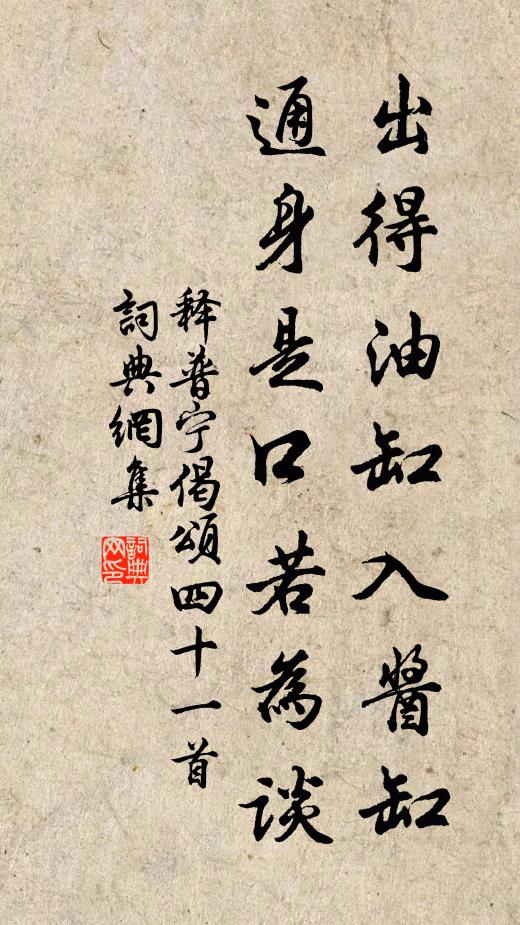 出得油缸入醬缸
通身是口若為談
释普宁偈頌四十一首
詞典網集
詞典网印